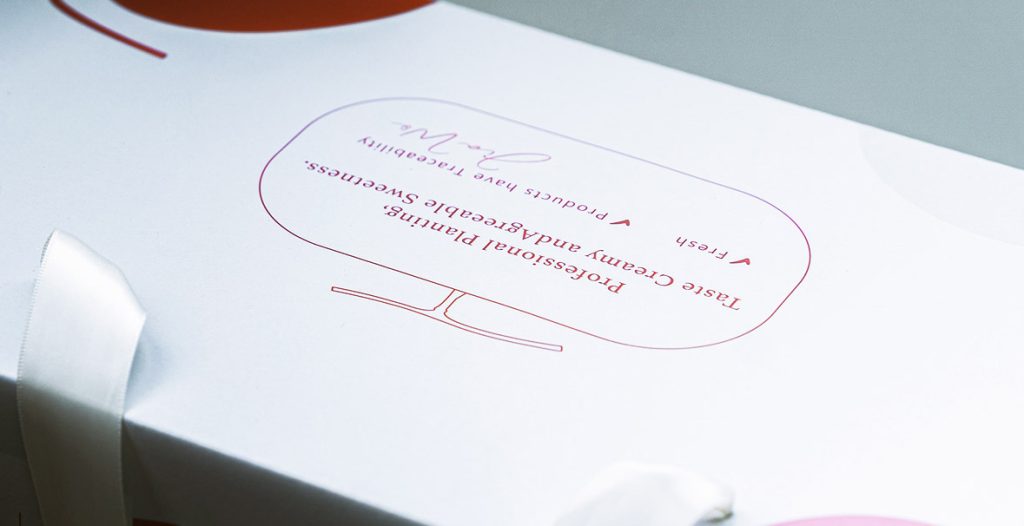 Professional Planting,
Taste Creamy andAgreeable Sweetness.
✓ Fresh ✓ Products have Traceability